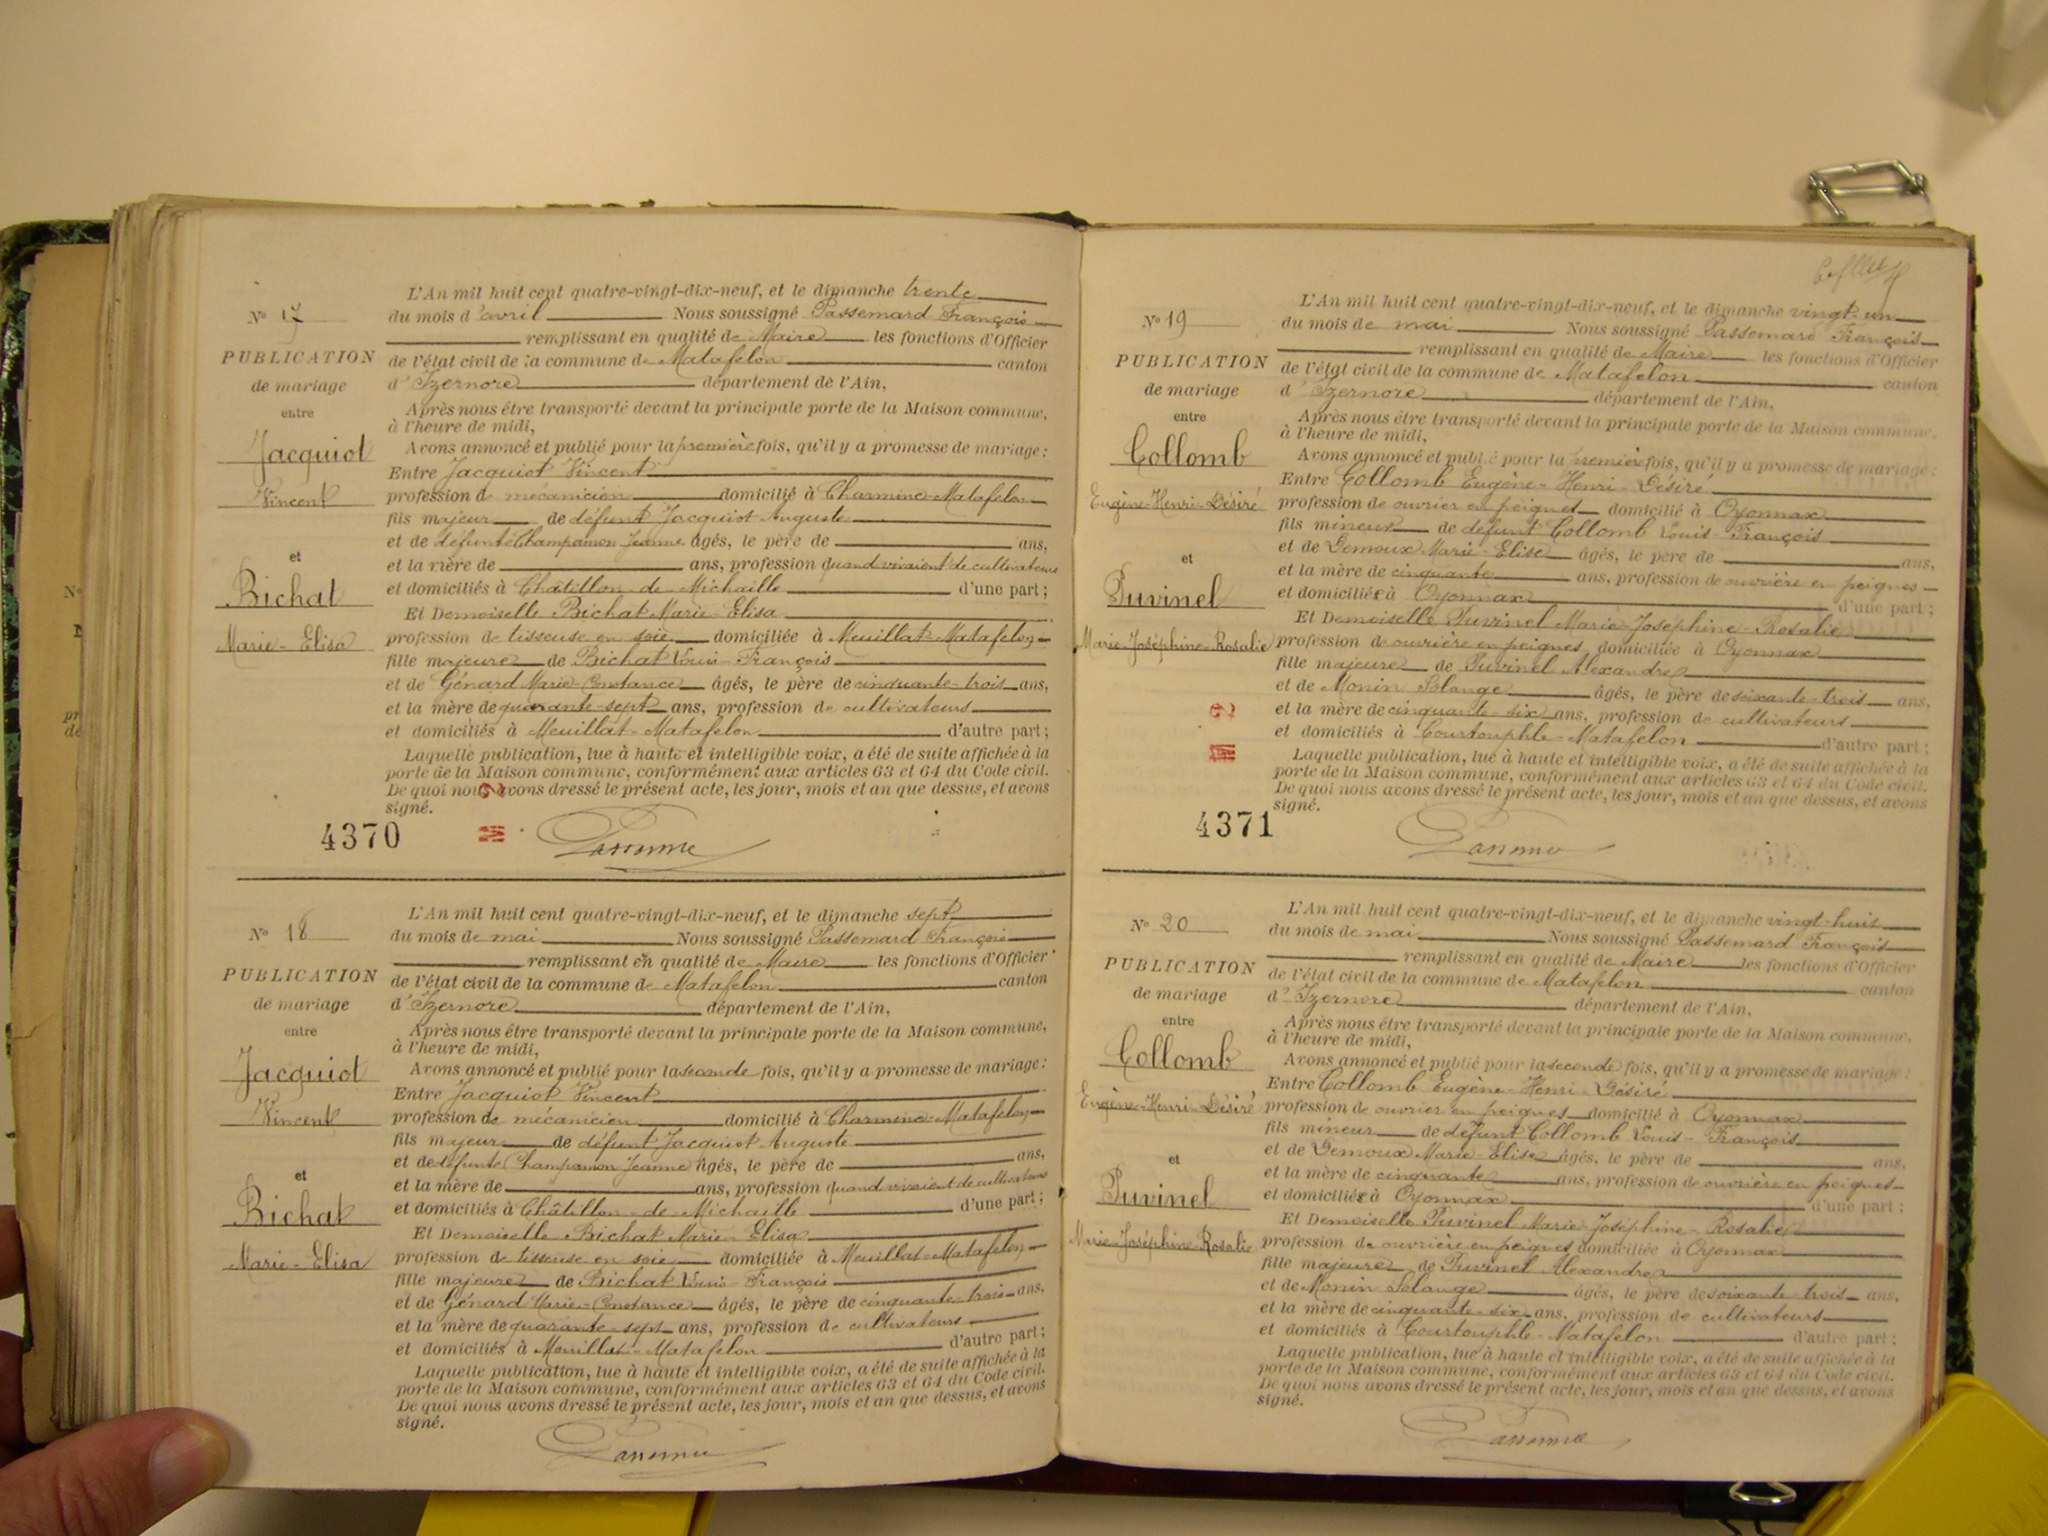 N° 17
PUBLICATION
de mariage
entre
Jacquiot
Vincent
et
Bichat
Marie-Elisa
L'An mil huit cent quatre-vingt-dix-neuf, et le dimanche trente
du mois d'avril Nous soussigné Passemard François
remplissant en qualité de Maire les fonctions d'Officier
de l'état civil de la commune de Matafelon canton
d'Izernore département de l'Ain,
Après nous être transporté devant la principale porte de la Maison commune,
à l'heure de midi,
Avons annoncé et publié pour la première fois, qu'il y a promesse de mariage:
Entre Jacquiot Vincent
profession de mécanicien domicilié à Charmine-Matafelon
fils majeur de défunt Jacquiot Auguste
et de défunte Champamon Jeanne âgés, le père de ans,
et la mère de ans, profession quand vivaient de cultivateurs
et domiciliés à Châtillon-de-Michaille d'une part;
Et Demoiselle Bichat Marie-Elisa
profession de tisseuse en soie domiciliée à Meuillat-Matafelon
fille majeure de Bichat Louis-François
et de Génard Marie-Constance âgés, le père de cinquante-trois ans,
et la mère de quarante-sept ans, profession de cultivateurs
et domiciliés à Meuillat-Matafelon d'autre part;
Laquelle publication, lue à haute et intelligible voix, a été de suite affichée à la
porte de la Maison commune, conformément aux articles 63 et 64 du Code civil.
De quoi nous avons dressé le présent acte, les jour, mois et an que dessus, et avons
signé.
4370
N° 18
PUBLICATION
de mariage
entre
Jacquiot
Vincent
et
Bichat
Marie-Elisa
L'An mil huit cent quatre-vingt-dix-neuf, et le dimanche sept
du mois de mai Nous soussigné Passemard François
remplissant en qualité de Maire les fonctions d'Officier
de l'état civil de la commune de Matafelon canton
d'Izernore département de l'Ain,
Après nous être transporté devant la principale porte de la Maison commune,
à l'heure de midi,
Avons annoncé et publié pour la seconde fois, qu'il y a promesse de mariage:
Entre Jacquiot Vincent
profession de mécanicien domicilié à Charmine-Matafelon
fils majeur de défunt Jacquiot Auguste
et de défunte Champamon Jeanne âgés, le père de ans,
et la mère de ans, profession quand vivaient de cultivateurs
et domiciliés à Châtillon-de-Michaille d'une part;
Et Demoiselle Bichat Marie-Elisa
profession de tisseuse en soie domiciliée à Meuillat-Matafelon
fille majeure de Bichat Louis-François
et de Génard Marie-Constance âgés, le père de cinquante-trois ans,
et la mère de quarante-sept ans, profession de cultivateurs
et domiciliés à Meuillat-Matafelon d'autre part;
Laquelle publication, lue à haute et intelligible voix, a été de suite affichée à la
porte de la Maison commune, conformément aux articles 63 et 64 du Code civil.
De quoi nous avons dressé le présent acte, les jour, mois et an que dessus, et avons
signé.
N° 19
PUBLICATION
de mariage
entre
Collomb
Eugène-Henri-Désiré
et
Puvinel
Marie-Joséphine-Rosalie
L'An mil huit cent quatre-vingt-dix-neuf, et le dimanche vingt-un
du mois de mai Nous soussigné Passemard François
remplissant en qualité de Maire les fonctions d'Officier
de l'état civil de la commune de Matafelon canton
d'Izernore département de l'Ain,
Après nous être transporté devant la principale porte de la Maison commune,
à l'heure de midi,
Avons annoncé et publié pour la première fois, qu'il y a promesse de mariage:
Entre Collomb Eugène-Henri-Désiré
profession de ouvrier en peignes domicilié à Oyonnax
fils mineur de défunt Collomb Louis-François
et de Gemoux Marie-Elise âgés, le père de ans,
et la mère de cinquante ans, profession de ouvrière en peignes
et domiciliés à Oyonnax d'une part;
Et Demoiselle Puvinel Marie-Joséphine-Rosalie
profession de ouvrière en peignes domiciliée à Oyonnax
fille majeure de Puvinel Alexandre
et de Monin Solange âgés, le père de soixante-trois ans,
et la mère de cinquante-six ans, profession de cultivateurs
et domiciliés à Courtouphle-Matafelon d'autre part;
Laquelle publication, lue à haute et intelligible voix, a été de suite affichée à la
porte de la Maison commune, conformément aux articles 63 et 64 du Code civil.
De quoi nous avons dressé le présent acte, les jour, mois et an que dessus, et avons
signé.
4371
N° 20
PUBLICATION
de mariage
entre
Collomb
Eugène-Henri-Désiré
et
Puvinel
Marie-Joséphine-Rosalie
L'An mil huit cent quatre-vingt-dix-neuf, et le dimanche vingt-huit
du mois de mai Nous soussigné Passemard François
remplissant en qualité de Maire les fonctions d'Officier
de l'état civil de la commune de Matafelon canton
d'Izernore département de l'Ain,
Après nous être transporté devant la principale porte de la Maison commune,
à l'heure de midi,
Avons annoncé et publié pour la seconde fois, qu'il y a promesse de mariage:
Entre Collomb Eugène-Henri-Désiré
profession de ouvrier en peignes domicilié à Oyonnax
fils mineur de défunt Collomb Louis-François
et de Gemoux Marie-Elise âgés, le père de ans,
et la mère de cinquante ans, profession de ouvrière en peignes
et domiciliés à Oyonnax d'une part;
Et Demoiselle Puvinel Marie-Joséphine-Rosalie
profession de ouvrière en peignes domiciliée à Oyonnax
fille majeure de Puvinel Alexandre
et de Monin Solange âgés, le père de soixante-trois ans,
et la mère de cinquante-six ans, profession de cultivateurs
et domiciliés à Courtouphle-Matafelon d'autre part;
Laquelle publication, lue à haute et intelligible voix, a été de suite affichée à la
porte de la Maison commune, conformément aux articles 63 et 64 du Code civil.
De quoi nous avons dressé le présent acte, les jour, mois et an que dessus, et avons
signé.